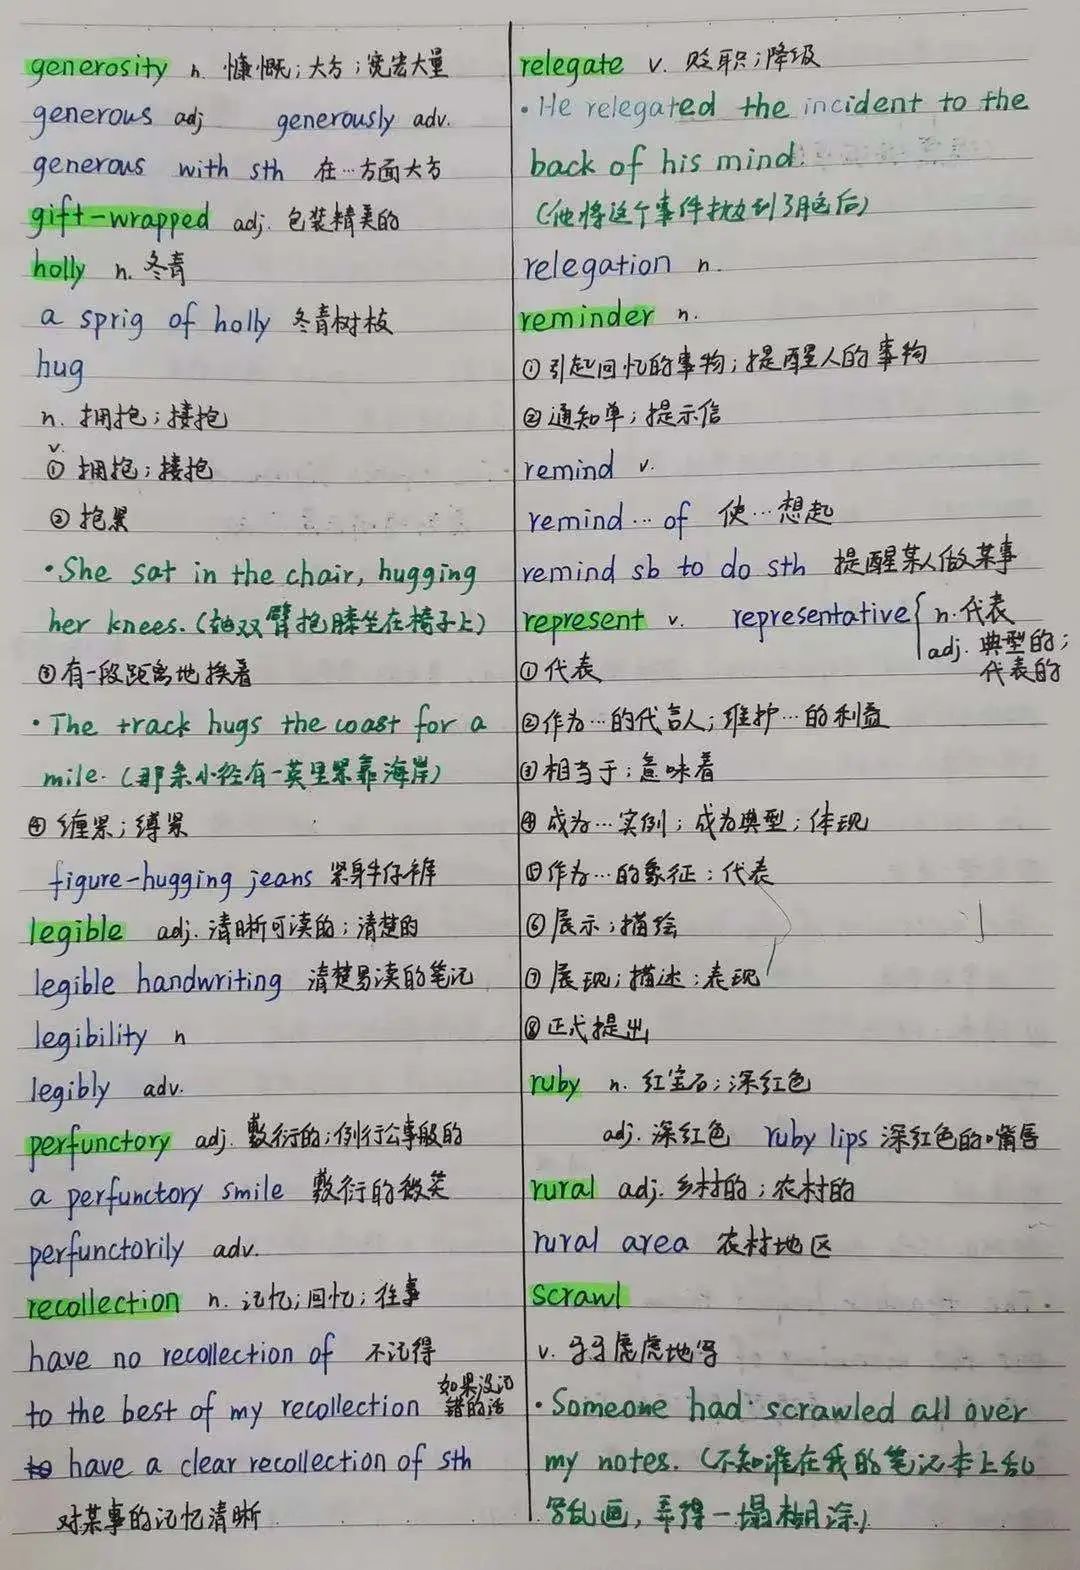 generosity n. 慷慨；大方；宽宏大量
generous adj generously adv.
generous with sth 在…方面大方
gift-wrapped adj. 包装精美的
holly n. 冬青
a sprig of holly 冬青树枝
hug
n. 拥抱；搂抱
v.
① 拥抱；搂抱
② 抱紧
·She sat in the chair, hugging
her knees.(她双臂抱膝坐在椅子上)
③有一段距离地挨着
·The track hugs the coast for a
mile.(那条小径有一英里紧靠海岸)
④ 缠紧；缚紧
figure-hugging jeans 紧身牛仔裤
legible adj. 清晰可读的；清楚的
legible handwriting 清楚易读的笔记
legibility n
legibly adv.
perfunctory adj. 敷衍的；例行公事般的
a perfunctory smile 敷衍的微笑
perfunctorily adv.
recollection n. 记忆；回忆；往事
have no recollection of 不记得
to the best of my recollection 如果没记错的话
have a clear recollection of sth
对某事的记忆清晰
relegate v. 贬职；降级
·He relegated the incident to the
back of his mind.
(他将这个事件抛到了脑后)
relegation n.
reminder n.
①引起回忆的事物；提醒人的事物
②通知单；提示信
remind v.
remind…of 使…想起
remind sb to do sth 提醒某人做某事
represent v. representative { n.代表
adj. 典型的；
代表的
①代表
②作为…的代言人；维护…的利益
③相当于；意味着
④成为…实例；成为典型；体现
⑤作为…的象征；代表
⑥展示；描绘
⑦展现；描述；表现
⑧正式提出
ruby n. 红宝石；深红色
adj. 深红色 ruby lips 深红色的嘴唇
rural adj. 乡村的；农村的
rural area 农村地区
scrawl
v. 马马虎虎地写
·Someone had scrawled all over
my notes.(不知谁在我的笔记本上乱
写乱画，弄得一塌糊涂.)